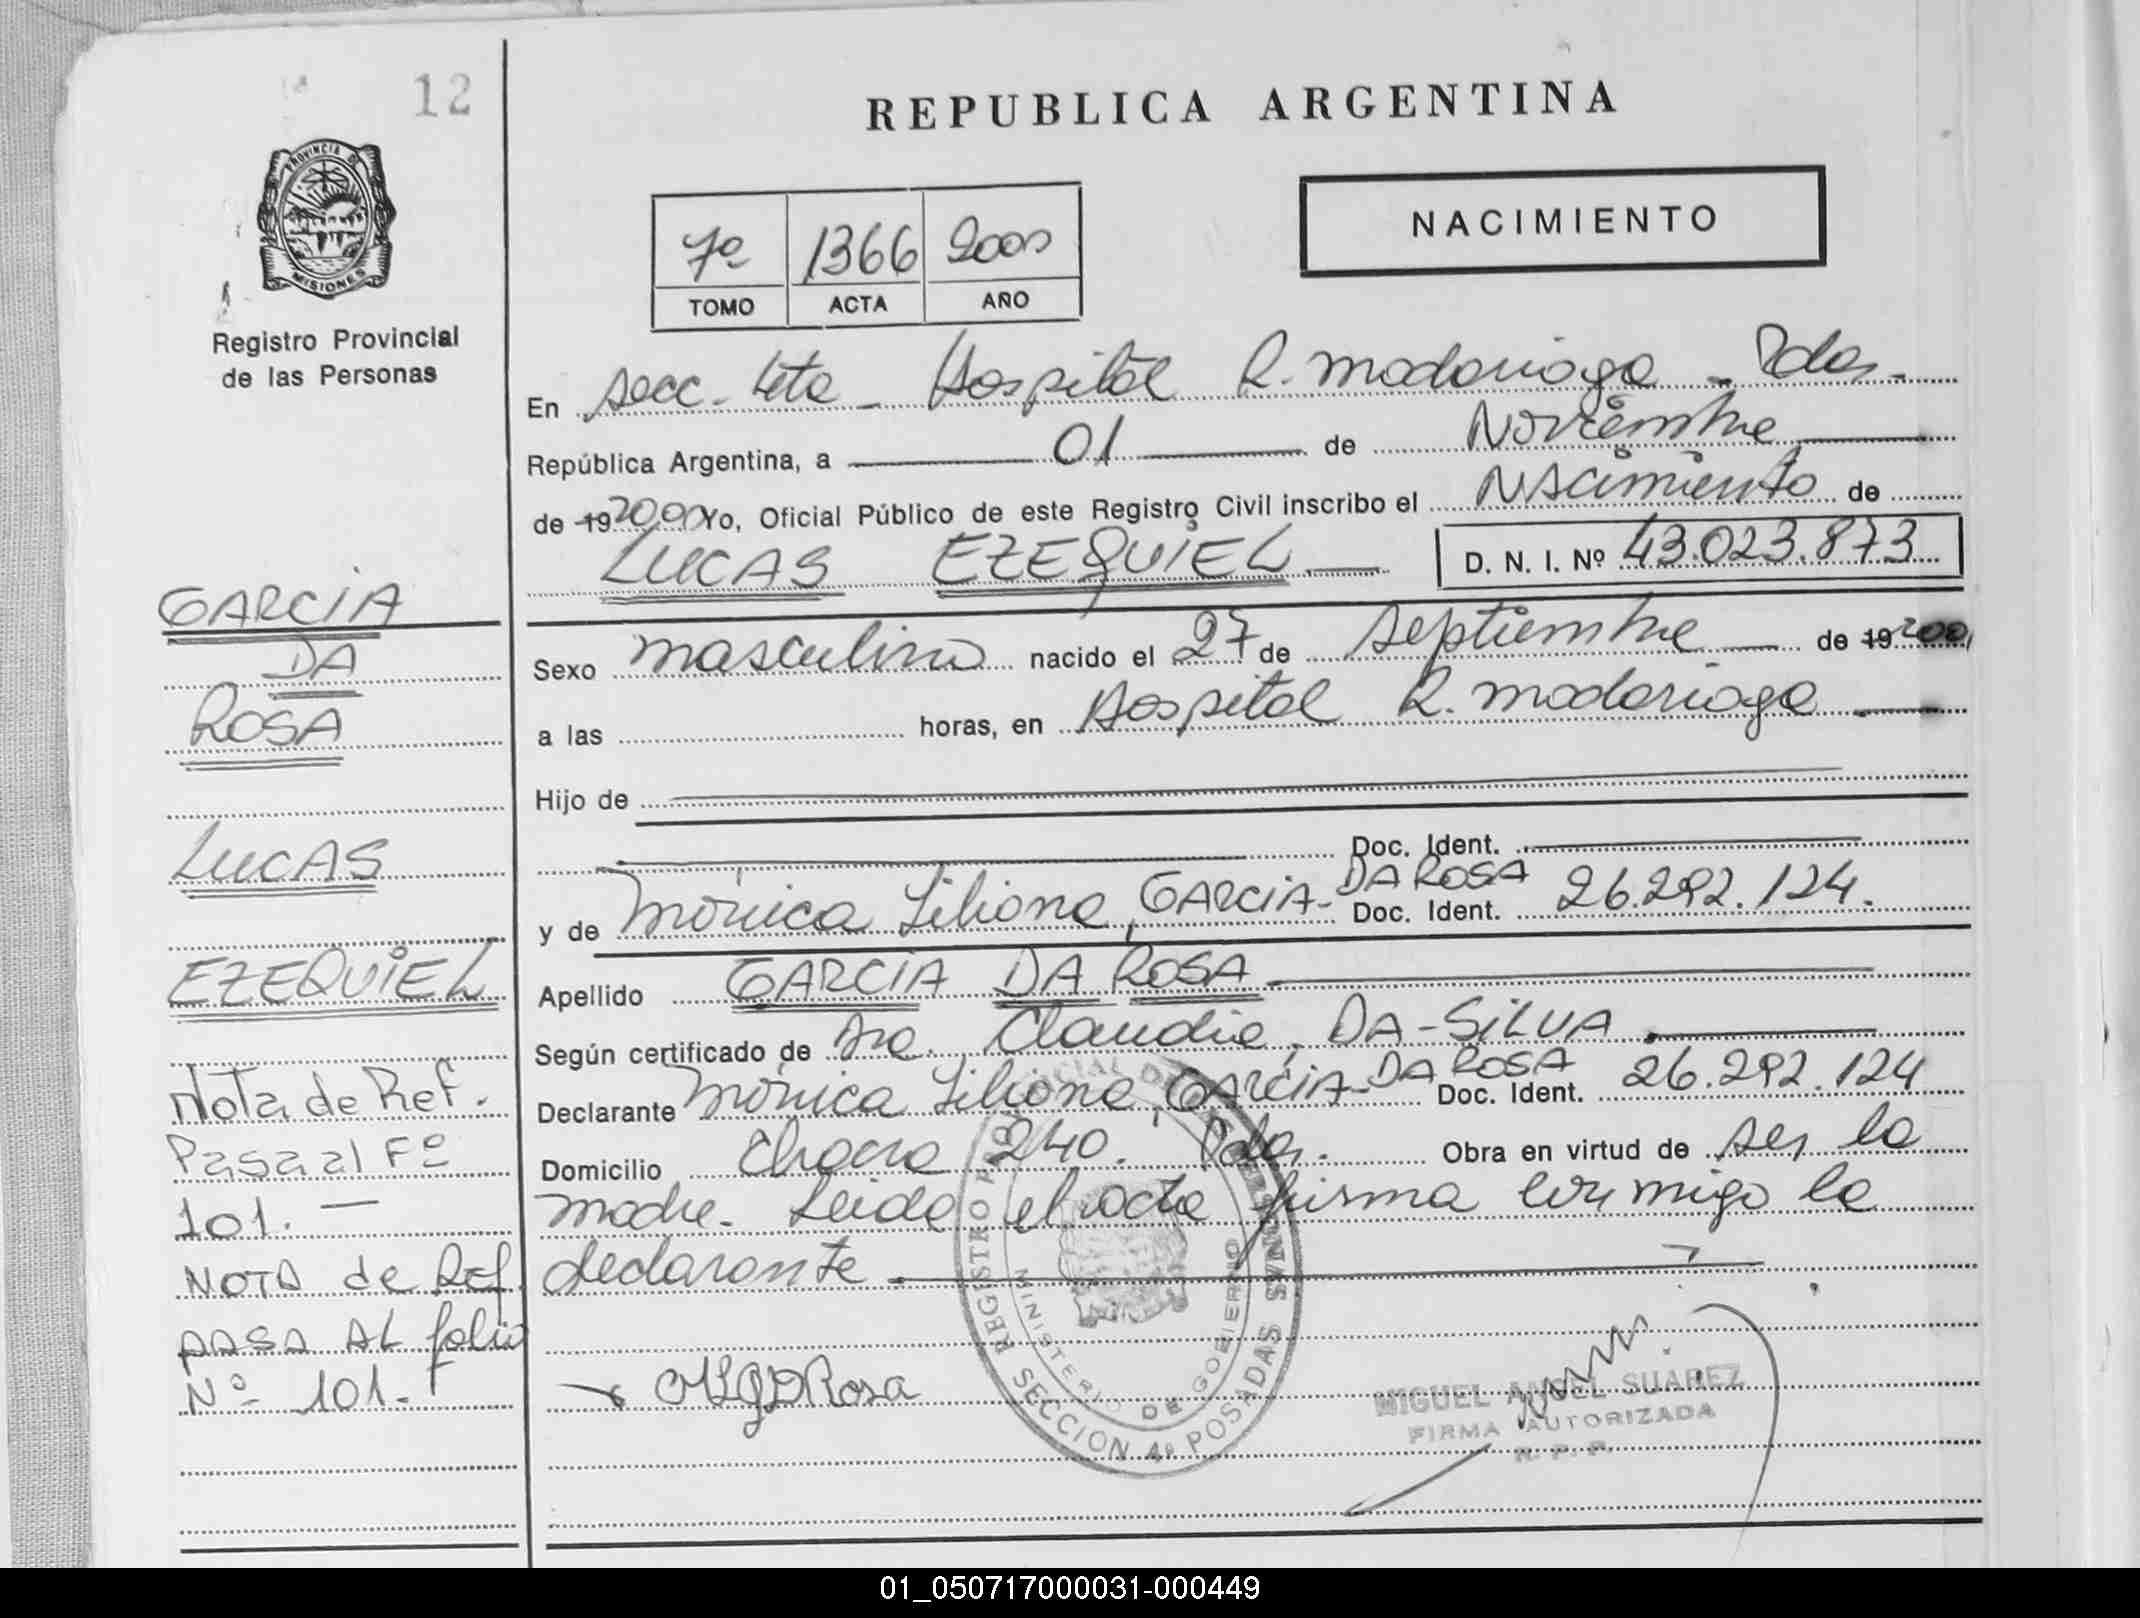 12
REPUBLICA ARGENTINA
PROVINCIA DE
MISIONES
Registro Provincial
de las Personas
7º 1366 2000
TOMO ACTA AÑO
NACIMIENTO
En secc. 4ta - Hospital R. Madariaga - Pdas.
República Argentina, a 01 de Noviembre
de 19 2000 Yo, Oficial Público de este Registro Civil inscribo el Nacimiento de
LUCAS EZEQUIEL D. N. I. Nº 43.023.873
Sexo masculino nacido el 27 de septiembre de 19 2000
a las horas, en Hospital R. Madariaga
Hijo de
Doc. Ident.
y de Mónica Liliana, GARCIA - DA ROSA Doc. Ident. 26.292.124.
Apellido GARCIA DA ROSA
Según certificado de Dra. Claudia, DA-SILVA.
Declarante Mónica Liliana, GARCIA-DA ROSA Doc. Ident. 26.292.124
Domicilio Chacra 240. Pdas. Obra en virtud de ser la
madre. Leida el acta firma conmigo la
declarante
GARCIA
DA
ROSA
LUCAS
EZEQUIEL
Nota de Ref.
Pasa al Fº
101. -
NOTA de Ref.
PASA AL folio
Nº 101.-
REGISTRO PROVINCIAL DE LAS PERSONAS
SECCION 4º POSADAS
MINISTERIO DE GOBIERNO
MIGUEL ANGEL SUAREZ
FIRMA AUTORIZADA
R. P. P.
01_050717000031-000449